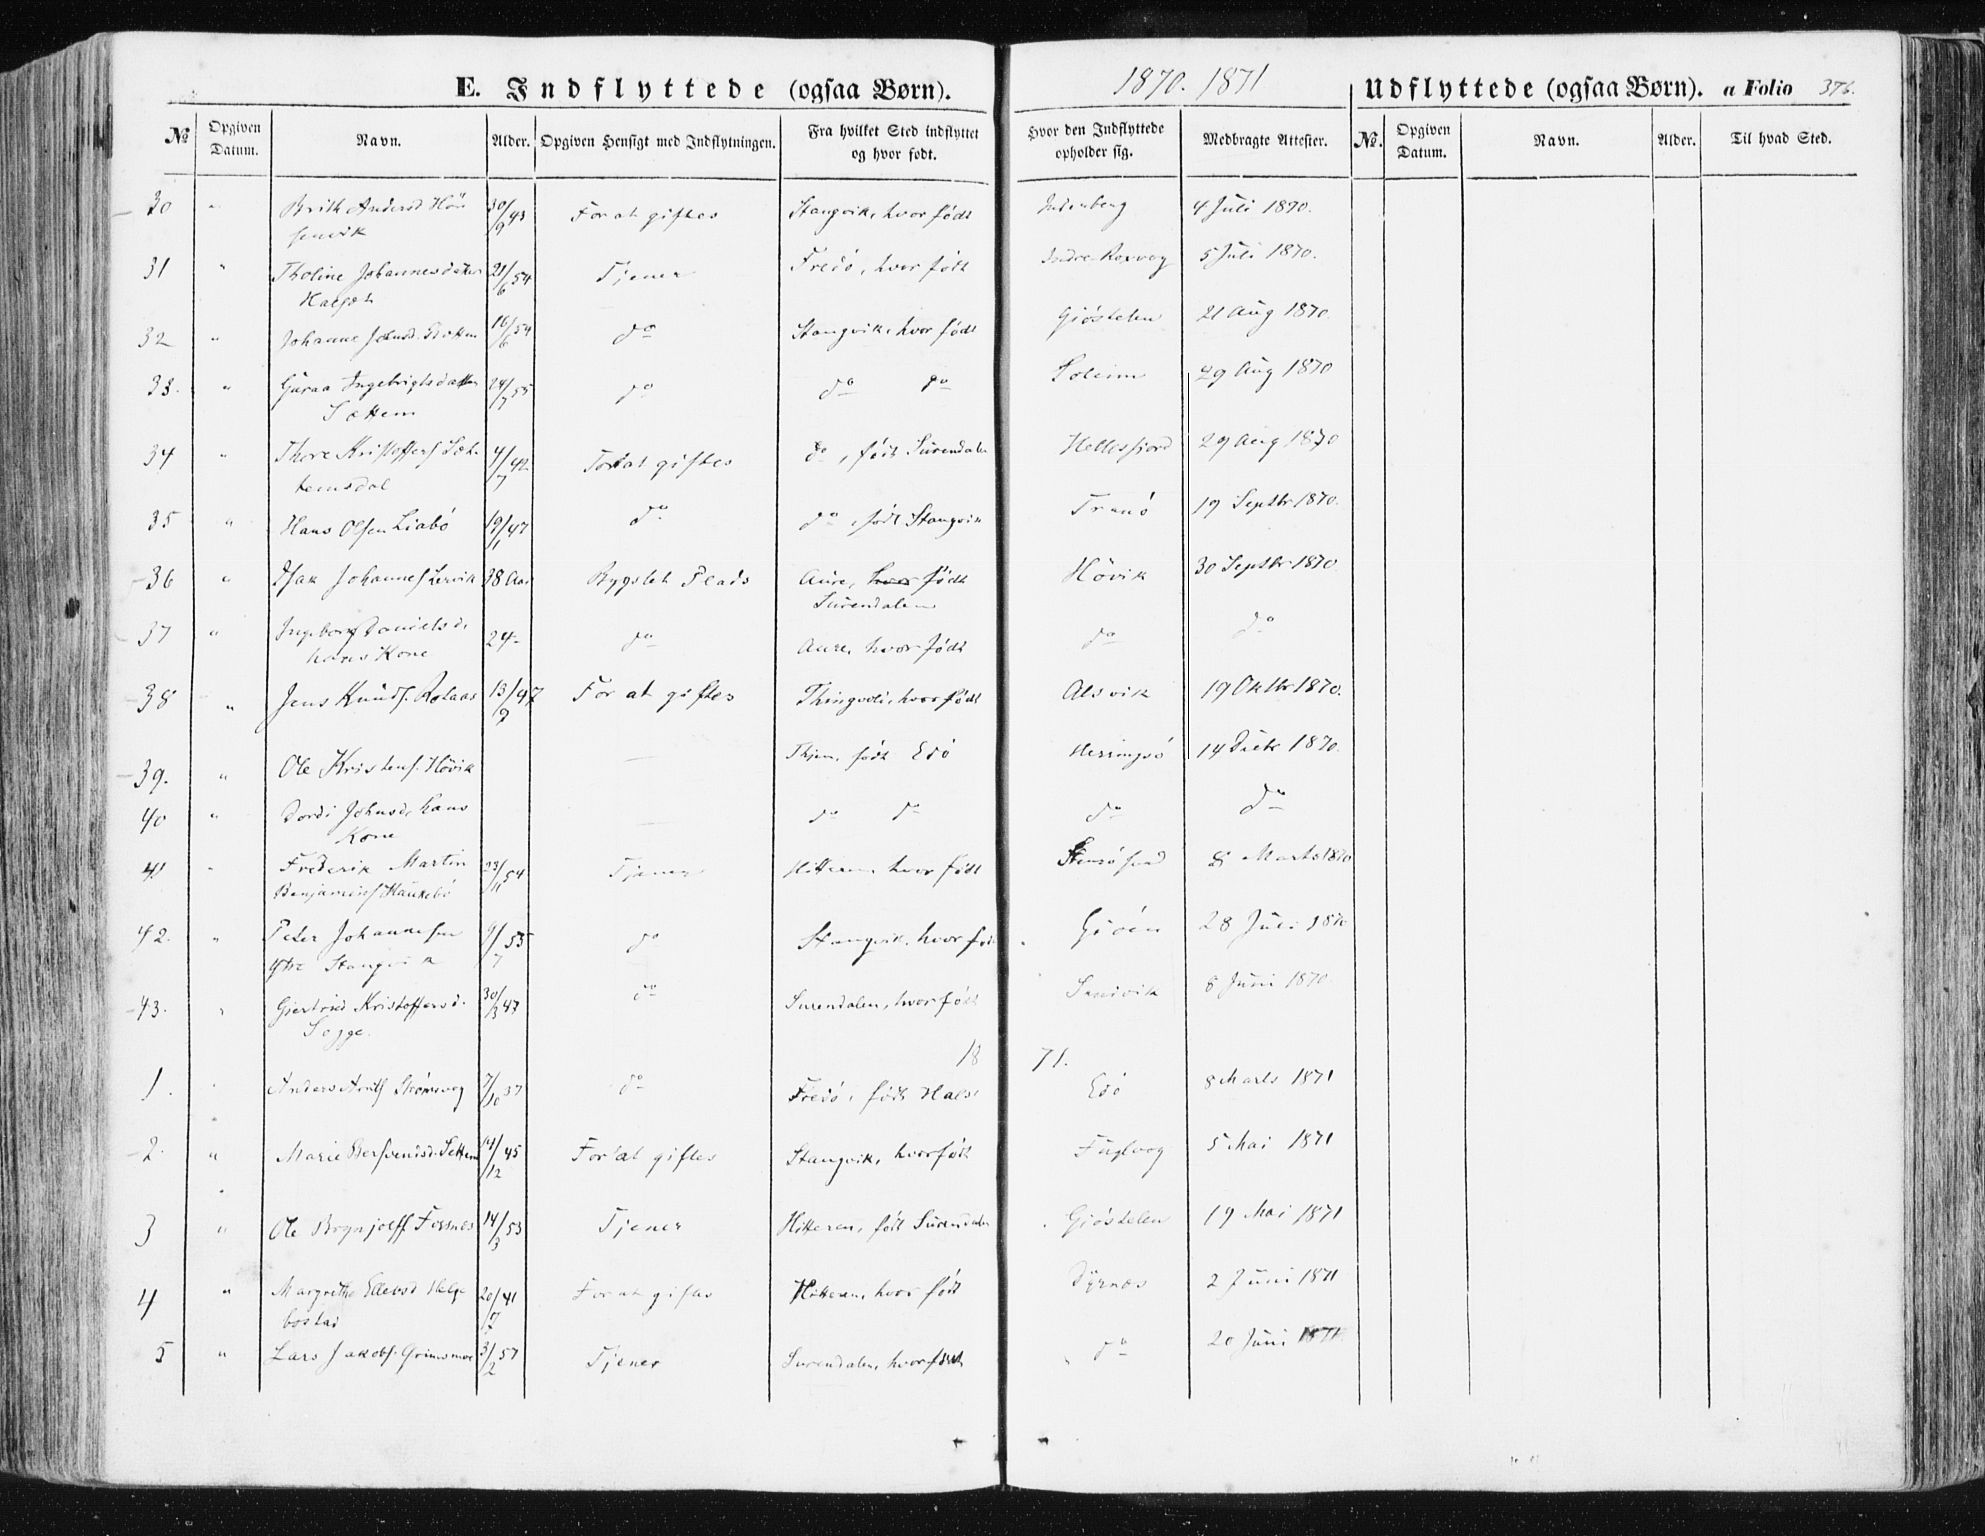 E. Indflyttede (ogsaa Børn). 1870. 1871 Udflyttede (ogsaa Børn). a Folio 376.
№ Opgiven Datum. Navn. Alder. Opgiven Hensigt med Indflytningen. Fra hvilket Sted indflyttet og hvor født. Hvor den Indflyttede opholder sig. Medbragte Attester. №. Opgiven Datum. Navn. Alder. Til hvad Sted.
30 " Brith Andersd 30/9 43 For at giftes Stangvik, hvor født 4 Juli 1870.
31 " Tholine Johannesdatter 21/6 54 Tjener Fredö, hvor född Indre Roxvog 5 Juli 1870.
32 " Johanne Johnsd. 16/6 54 do Stangvik, hvor född Gjöstelen 21 Aug 1870.
33. " Guraa Ingebrigtsdatter Sættem 24/7 55 do do do Soleim 29 Aug 1870
34 " Thore Kristoffers Sættemsdal 4/7 42 For at giftes do, född Surendalen Hellesfjord 29 Aug 1870
35 " Hans Olsen Liabö 19/1 47 do do, född Stangvik Tranö 19 Septbr 1870.
36 " Isak Johannes Lervik 38 Aar Bygslet Plads Aure, hvor född Surendalen Hövik 30 Septbr 1870.
37 " Ingeborg Danielsd. hans Kone 24 do Aure, hvor född do do
38 " Jens Knuds. 13/9 47 For at giftes Thingvoll, hvor född Alsvik 19 Oktbr 1870.
39. " Ole Kristens. Hövik född Edö Herringsö 14 1870.
40 " Dordi Johnsd. hans Kone do do do do
41 " Frederik Martin Benjamins Haukebö 23/11 54 Tjener Hitteren, hvor född 8 Marts 1870
42. " Peter Johannesen Ytre Stangvik 9/7 55 do Stangvik, hvor född Gjöen 28 Juli 1870
43. " Gjertrud Kristoffersd. Sogge. 30/3 47 do Surendalen, hvor född Sandvik 8 Juni 1870.
1871.
1. " Anders 7/10 37 do Fredö, född Halse Edö 8 Marts 1871
2. " Marie Settem 14/12 45 For at giftes Stangvik, hvor född Fuglvog 5 Mai 1871
3 " Ole Brynjolfs Fossnes 14/3 53 Tjener Hitteren, född Surendalen Gjöstelen 19 Mai 1871
4 " Margrethe Ellevsd Helgebostad 20/7 41 For at giftes Hitteren, hvor född Dyrnes 2 Juni 1871
5 " Lars Jakobs. Grimsmoe 3/2 57 Tjener Surendalen, hvor född do 20 Juni 1871